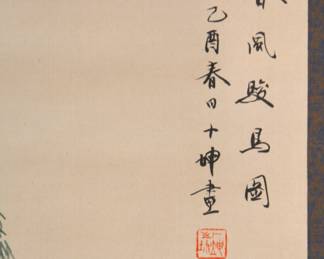 風駿馬圖
乙酉春日十坤畫